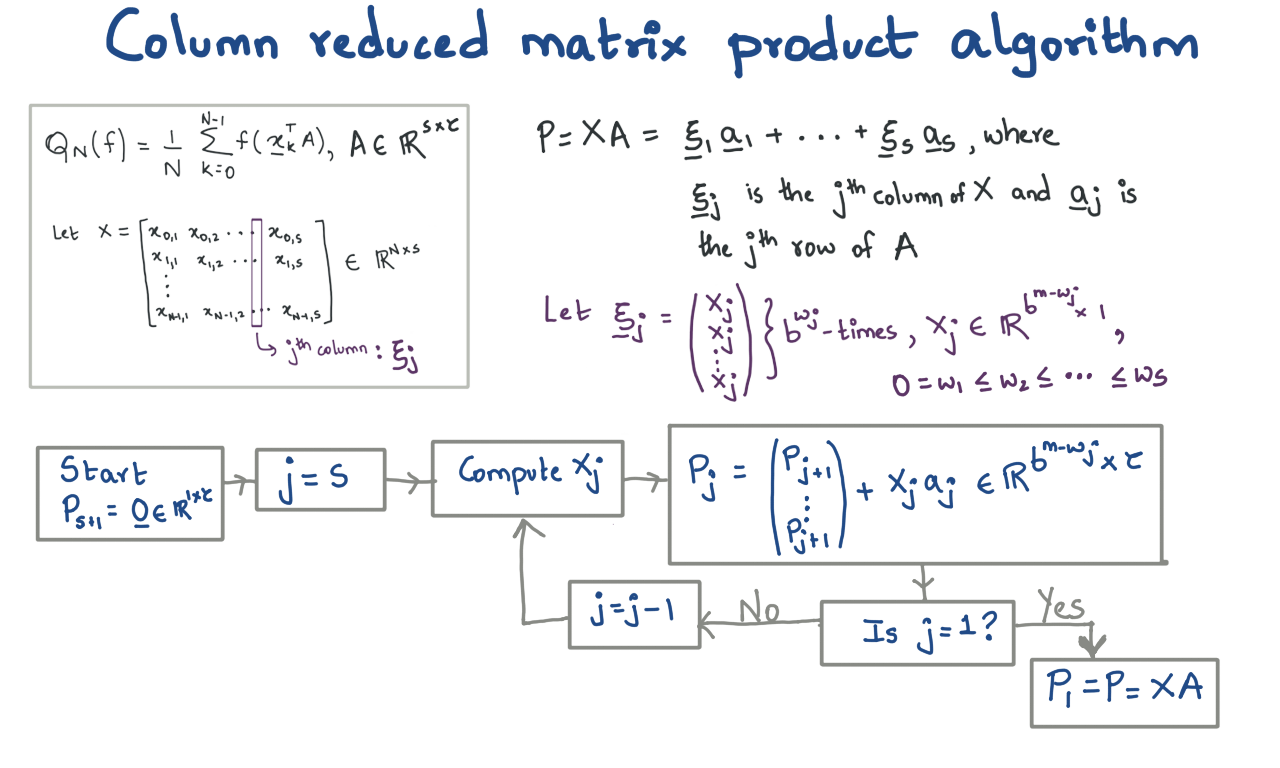 Column reduced matrix product algorithm
Q_N(f) = 1/N ∑_{k=0}^{N-1} f(x_k^T A), A ∈ ℝ^{s×τ}
Let X = [x_{0,1} x_{0,2} ... x_{0,s}
x_{1,1} x_{1,2} ... x_{1,s}
⋮
x_{N-1,1} x_{N-1,2} ... x_{N-1,s}] ∈ ℝ^{N×s}
↳ jth column : ξ_j
P = XA = ξ_1 a_1 + ... + ξ_s a_s, where
ξ_j is the jth column of X and a_j is
the jth row of A
Let ξ_j = (X_j X_j ⋮ X_j) } b^{w_j}-times, X_j ∈ ℝ^{b^{m-w_j}×1},
0 = w_1 ≤ w_2 ≤ ... ≤ w_s
Start
P_{s+1} = 0 ∈ ℝ^{1×τ}
j = s
Compute X_j
P_j = (P_{j+1} ⋮ P_{j+1}) + X_j a_j ∈ ℝ^{b^{m-w_j}×τ}
Is j = 1?
No
j = j-1
Yes
P_1 = P = XA